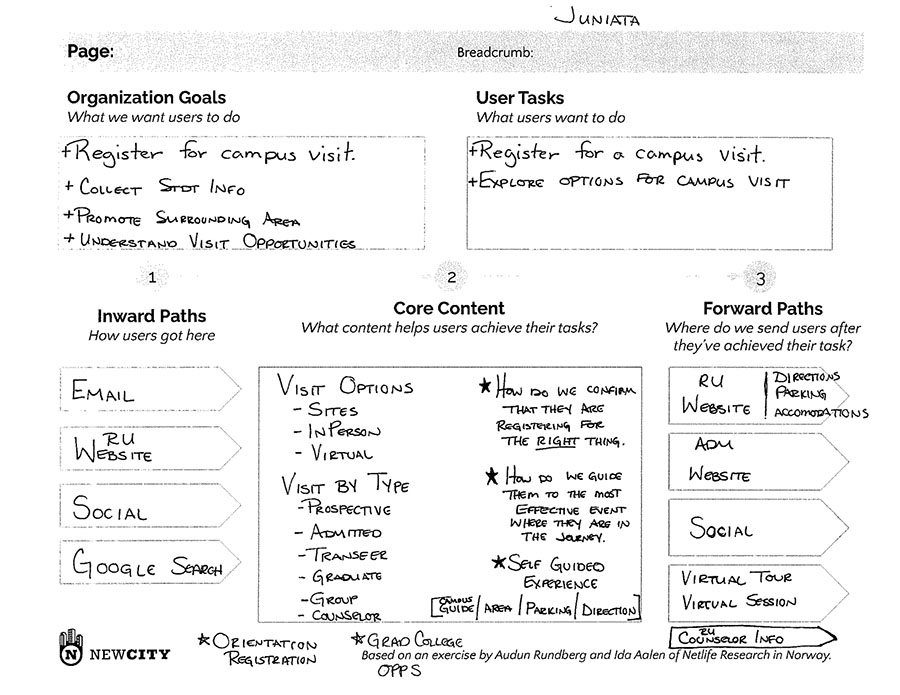 JUNIATA
Page:
Breadcrumb:
Organization Goals
What we want users to do
+Register for campus visit.
+ COLLECT STDT INFO
+PROMOTE SURROUNDING AREA
+ UNDERSTAND VISIT OPPORTUNITIES
User Tasks
What users want to do
+Register for a campus visit.
+EXPLORE OPTIONS FOR CAMPUS VISIT
1
Inward Paths
How users got here
EMAIL
RU
WEBSITE
SOCIAL
GOOGLE SEARCH
2
Core Content
What content helps users achieve their tasks?
VISIT OPTIONS
- SITES
- IN PERSON
- VIRTUAL
VISIT BY TYPE
- PROSPECTIVE
- ADMITTED
- TRANSEER
- GRADUATE
- GROUP
- COUNSELOR
★ HOW DO WE CONFIRM
THAT THEY ARE
REGISTERING FOR
THE RIGHT THING.
★ HOW DO WE GUIDE
THEM TO THE MOST
EFFECTIVE EVENT
WHERE THEY ARE IN
THE JOURNEY.
★ SELF GUIDED
EXPERIENCE
[CAMPUS GUIDE / AREA / PARKING / DIRECTION]
3
Forward Paths
Where do we send users after
they've achieved their task?
RU
WEBSITE
DIRECTIONS
PARKING
ACCOMODATIONS
ADM
WEBSITE
SOCIAL
VIRTUAL TOUR
VIRTUAL SESSION
RU
COUNSELOR INFO
N NEWCITY
★ ORIENTATION
REGISTRATION
★ GRAD COLLEGE
OPPS
Based on an exercise by Audun Rundberg and Ida Aalen of Netlife Research in Norway.